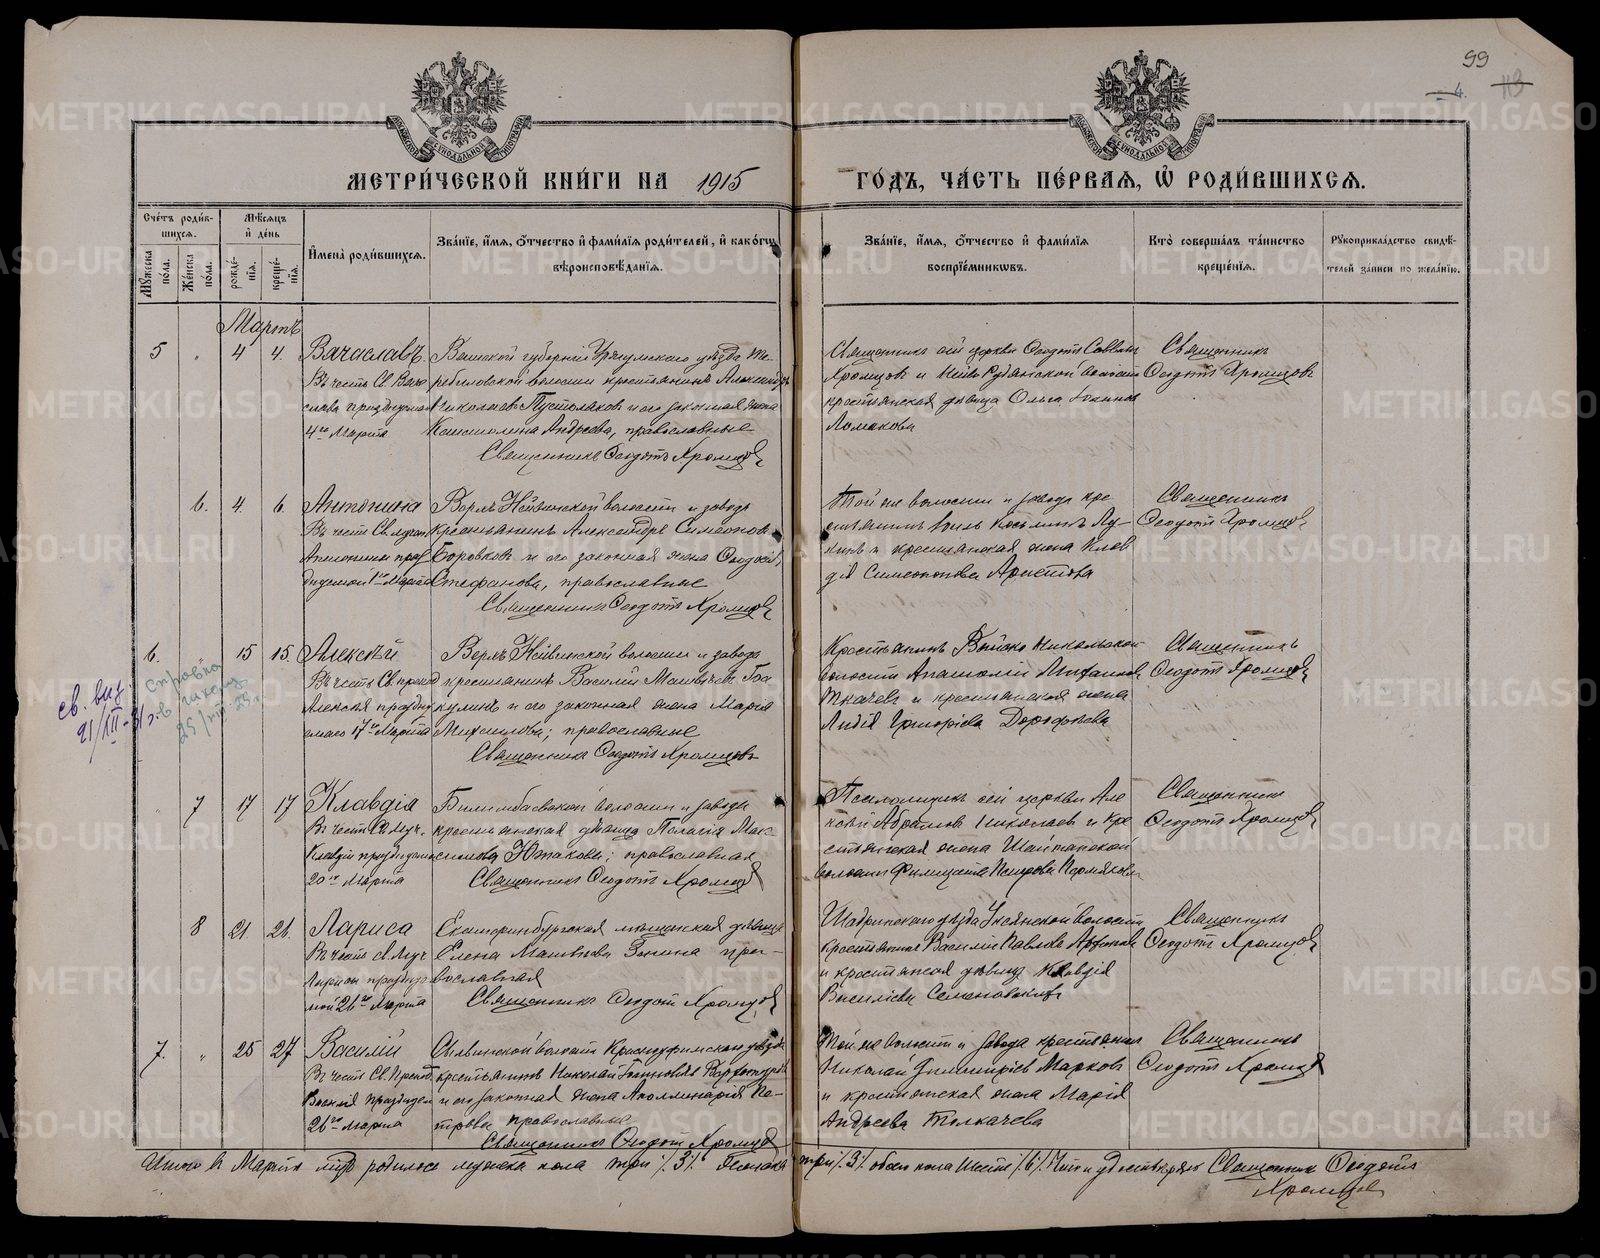 99
4. 113
МЕТРИ́ЧЕСКОЙ КНИ́ГИ НА 1915 ГО́ДЪ, ЧА́СТЬ ПЕ́РВАЯ, Ѡ҆ РОДИ́ВШИХСЯ.
Сче́тъ роди́вшихся.
Мѣ́сяцъ и҆ де́нь
Мꙋ́жеска по́ла.
Же́нска по́ла.
рожде́нїя.
креще́нїя.
И҆мена̀ роди́вшихся.
Зва́нїе, и҆́мя, ѻ҆́тчество и҆ фами́лїя роди́телей, и҆ како́гѡ вѣроисповѣ́данїя.
Зва́нїе, и҆́мя, ѻ҆́тчество и҆ фами́лїя воспрїе́мникѡвъ.
Кто̀ соверша́лъ та́инство креще́нїя.
Рꙋкоприкла́дство свидѣ́телей за́писи по жела́нїю.
Мартъ
5 " 4 4.
Вячеславъ
Въ честь Св. Вяче
слава празднуемаго
4го Марта
Вятской губерніи Уржумскаго уѣзда Те
ребиловской волости крестьянинъ Александръ
Николаевъ Пустолаковъ и его законная жена
Капитолина Андреева, православные
Священникъ Ѳеодотъ Хромцовъ
Священникъ сей церкви Ѳеодотъ Саввинъ
Хромцовъ и Нейво Рудянской волости
крестьянская дѣвица Ольга
Ломакова
Священникъ
Ѳеодотъ Хромцовъ
6. 4. 6.
Антонина
Въ честь Св. муч.
Антонины праз
днуемой 1го Марта
Верхъ Нейвинской волости и завода
крестьянинъ Александръ Симеоновъ
Боровковъ и его законная жена Ѳеодосія
Стефанова, православные
Священникъ Ѳеодотъ Хромцовъ
Той же волости и завода кре
стьянинъ Косьминъ Лу-
кинъ и крестьянская жена Клав
дія Симеонова Аристова
Священникъ
Ѳеодотъ Хромцовъ
6. 15 15.
Алексѣй
Въ честь Св. препод
Алексія праздну
емаго 17го Марта
Верхъ Нейвинской волости и завода
крестьянинъ Василій Матвѣевъ Ба
кулинъ и его законная жена Марія
Михаилова; православные
Священникъ Ѳеодотъ Хромцовъ
Крестьянинъ Никольской
волости Анатолій
Ткачевъ и крестьянская жена
Лидія Григоріева Дорофѣева
Священникъ
Ѳеодотъ Хромцовъ
св. выд.
21/XII-31г.
справка
в
25/
" 7 17 17
Клавдія
Въ честь Св. Муч.
Клавдіи празднуемой
20го Марта
Билимбаевской волости и завода
крестьянская дѣвица Палагія Мак-
симова Южакова; православная
Священникъ Ѳеодотъ Хромцовъ
Псаломщикъ сей церкви Але
ксѣй Абрамовъ Николаевъ и кре
стьянская жена Шайтанской
волости Фелицата Петрова Пермякова
Священникъ
Ѳеодотъ Хромцовъ
8 21. 21.
Лариса
Въ честь Св. Муч
Ларисы праздну
мой 26го Марта
Екатеринбургская мѣщанская дѣвица
Елена Матвѣева Зонина пра-
вославная
Священникъ Ѳеодотъ Хромцовъ
Шадринскаго уѣзда волости
крестьянинъ Василій Павловъ
и крестьянская дѣвица Клавдія
Василіева Семеновскихъ
Священникъ
Ѳеодотъ Хромцовъ
7. " 25 27
Василій
Въ честь Св. Препод.
Василія празднуем
26го Марта
Сылвинской волости Красноуфимскаго уѣзда
крестьянинъ Николай
и его законная жена Аполлинарія Пе-
трова православные
Священникъ Ѳеодотъ Хромцовъ
Той же волости и завода крестьянинъ
Николай Димитріевъ Марковъ
и крестьянская жена Марія
Андреева Толкачева
Священникъ
Ѳеодотъ Хромцовъ
Итого въ Мартѣ м-цѣ родилось мужска пола три /3/ женска три /3/ обоего пола Шесть /6/ Что и удостовѣряю Священникъ Ѳеодотъ
Хромцовъ